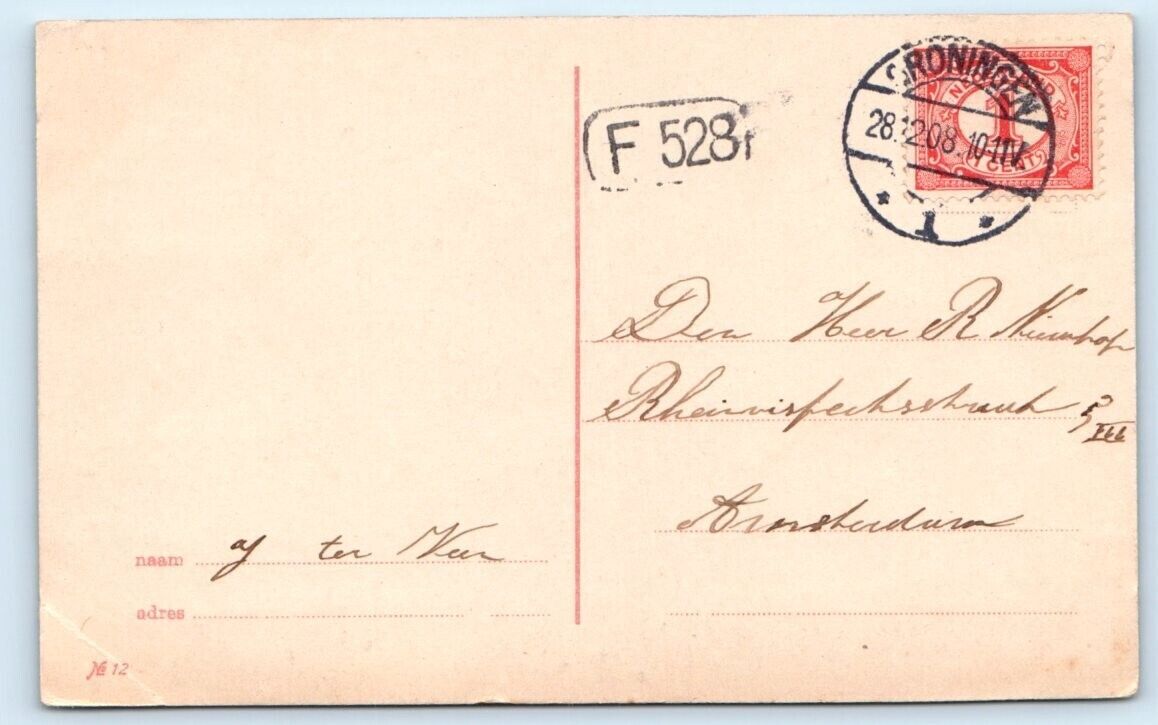 GRONINGEN
28.12.08. 10-11V
1
NED
1
CENT
F 528
Den Heer R
Amsterdam
naam ter Veer
adres
№ 12